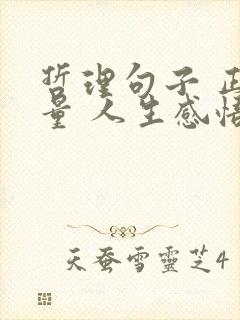 哲理句子 正
量 人生感悟
天蚕雪靈芝4